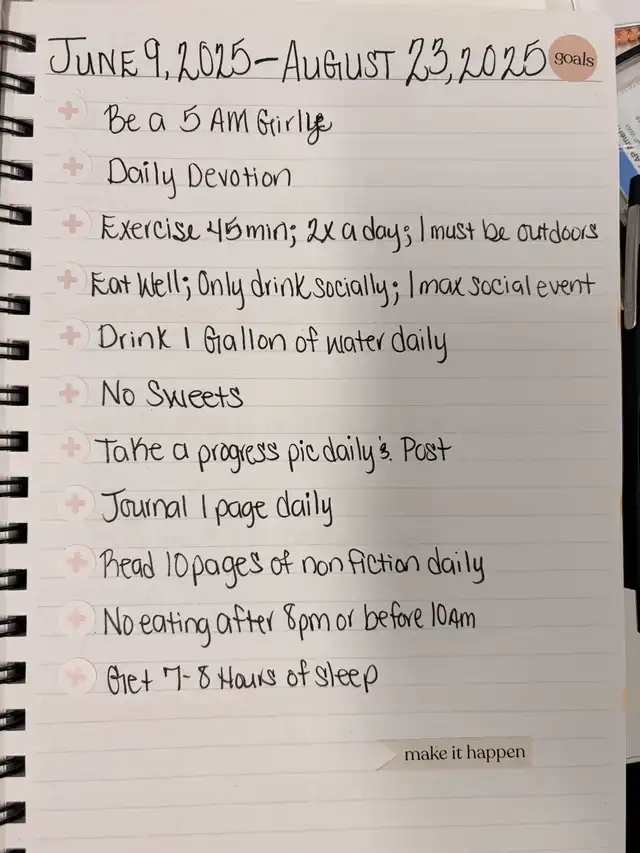 JUNE 9, 2025 – AUGUST 23, 2025 goals
Be a 5 AM Girly
Daily Devotion
Exercise 45 min; 2x a day; 1 must be outdoors
Eat Well; Only drink socially; 1 max social event
Drink 1 Gallon of water daily
No Sweets
Take a progress pic daily & Post
Journal 1 page daily
Read 10 pages of non fiction daily
No eating after 8pm or before 10AM
Get 7-8 Hours of sleep
make it happen